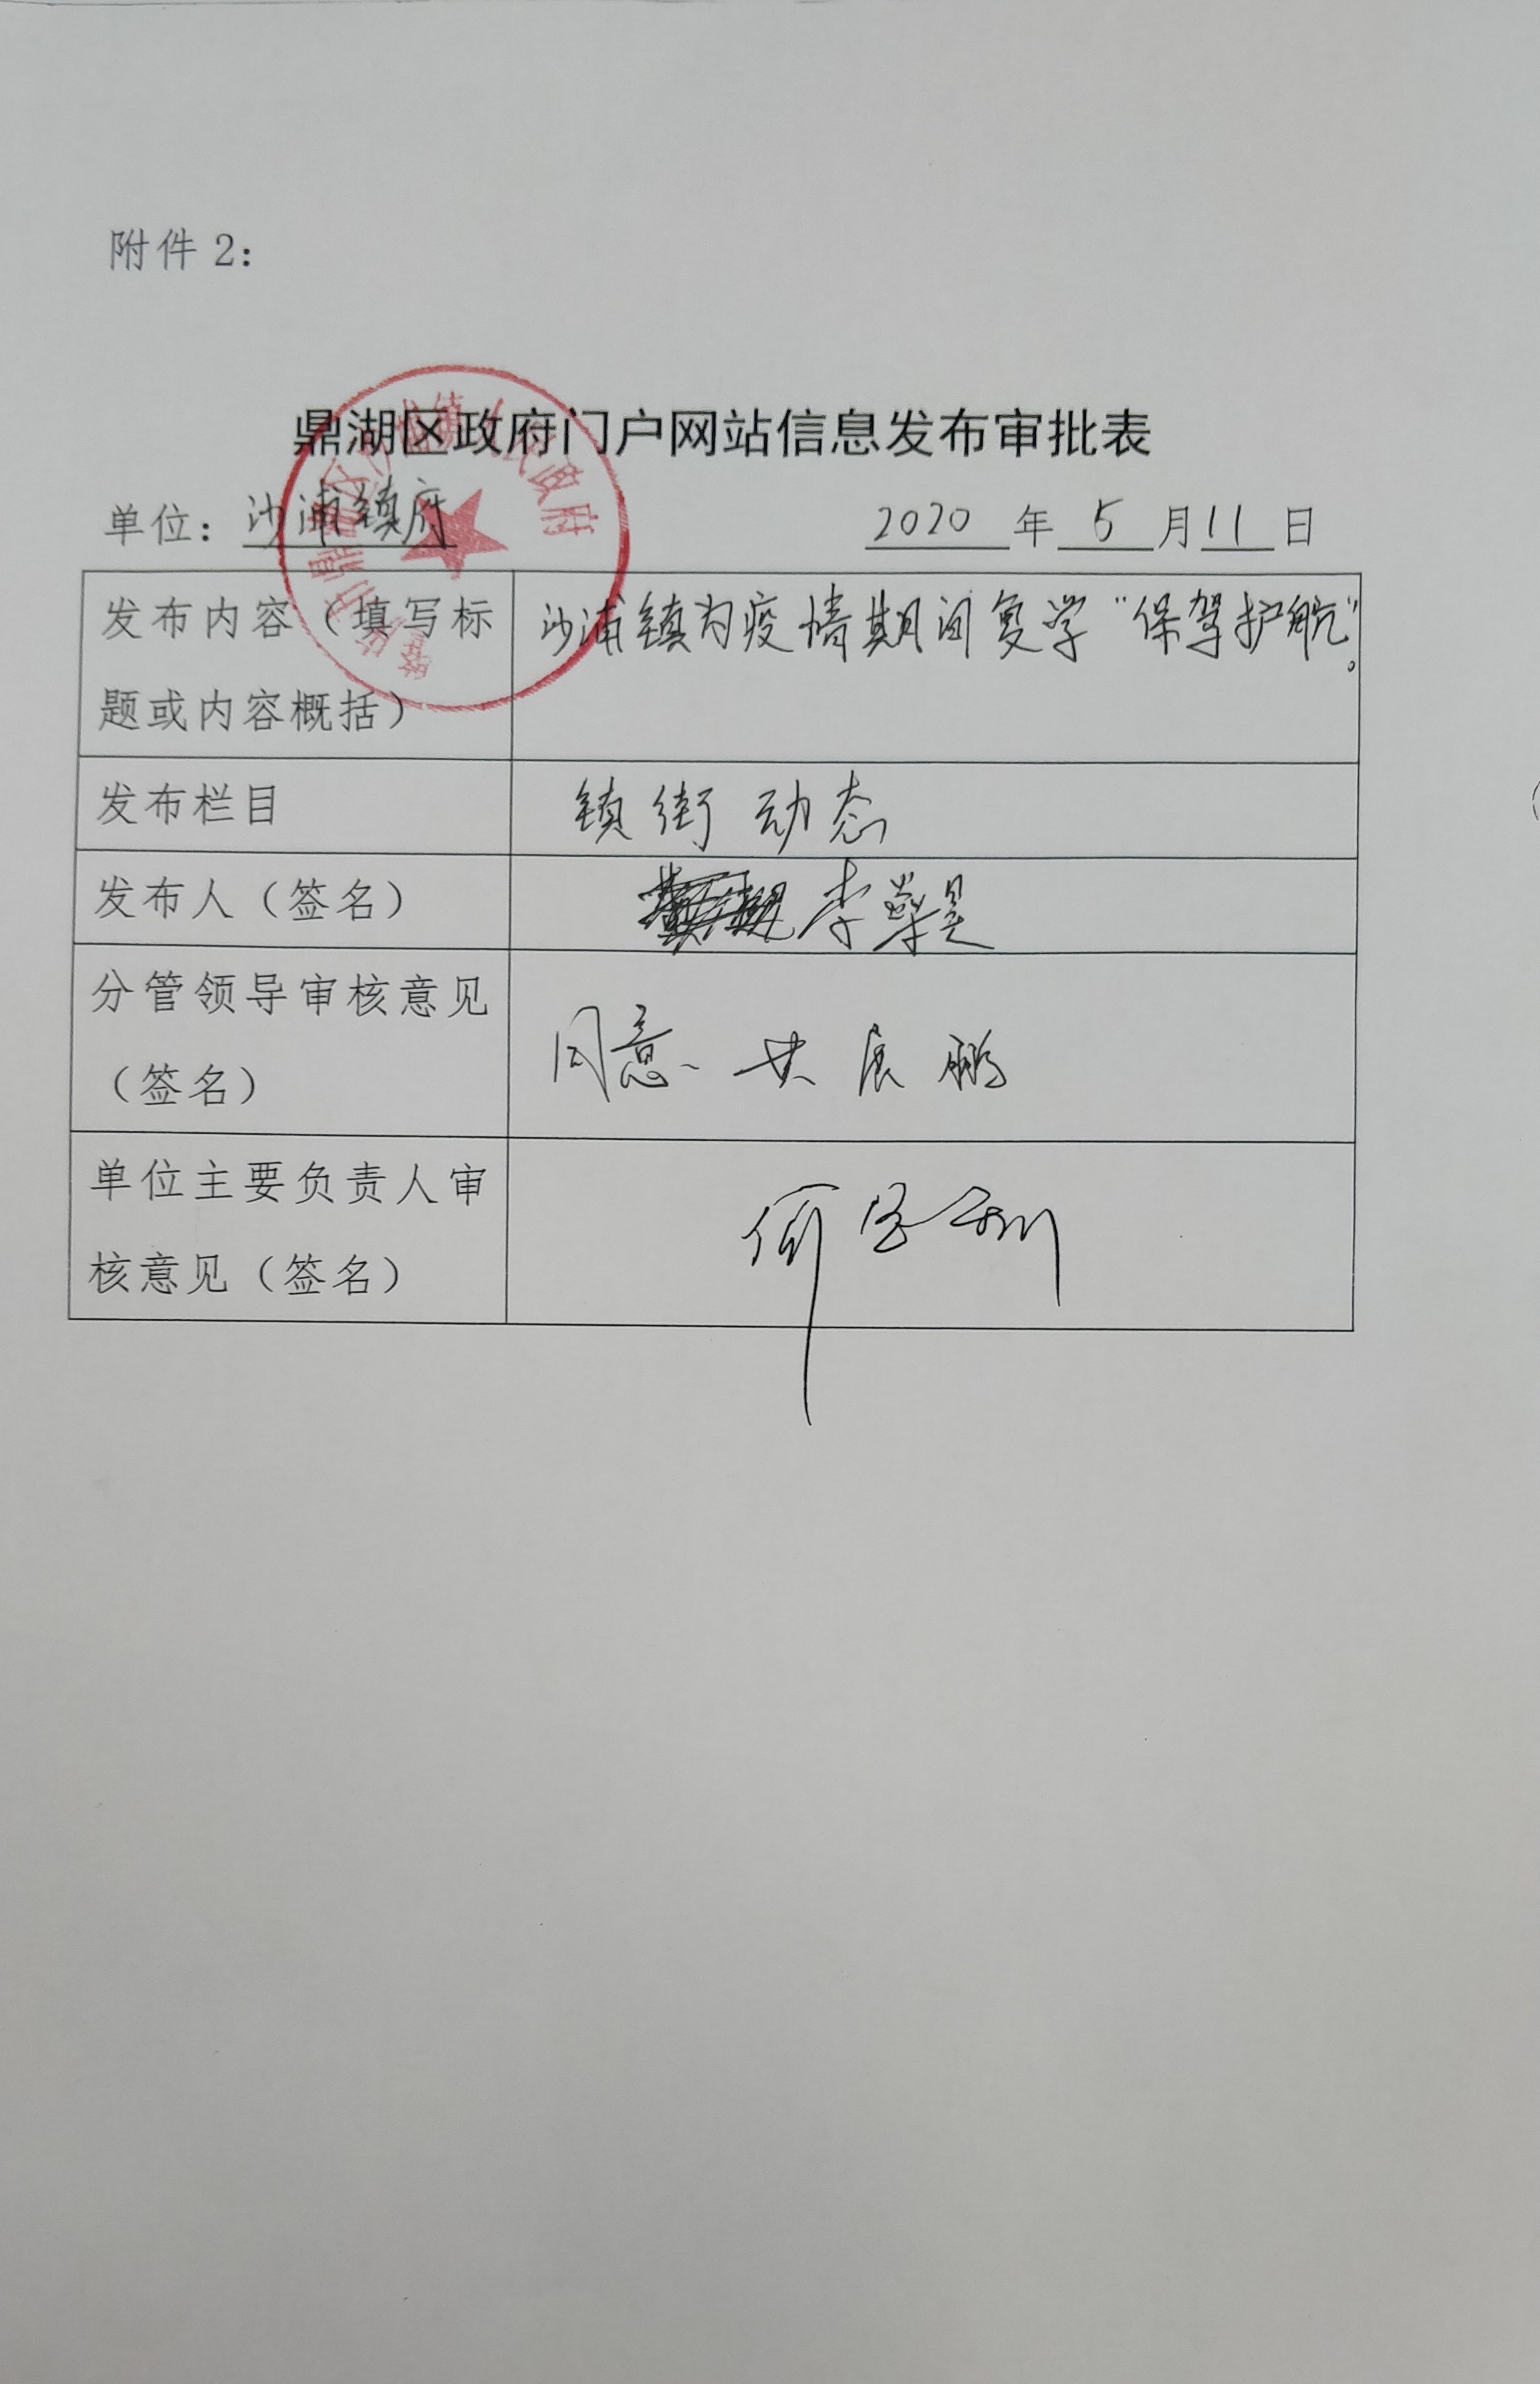 附件 2：
鼎湖区政府门户网站信息发布审批表
单位：沙浦镇府 2020 年 5 月 11 日
发布内容（填写标
题或内容概括）
沙浦镇为疫情期间复学“保驾护航”。
发布栏目
镇街动态
发布人（签名）
李
分管领导审核意见
（签名）
同意、 展鹏
单位主要负责人审
核意见（签名）
何